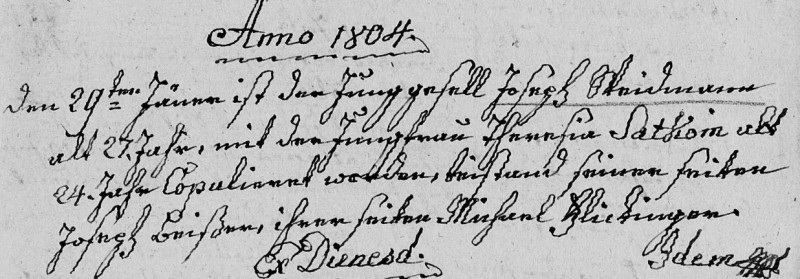 Anno 1804.
den 29ten Jäner ist der Jung gesell Joseph Weidmann
alt 27. Jahr, mit der Jungfrau Theresia alt
24. Jahr Copalieret worden, beistand seiner seiten
Joseph Beißer, ihrer seiten Michael
Ex Dienesd. Idem